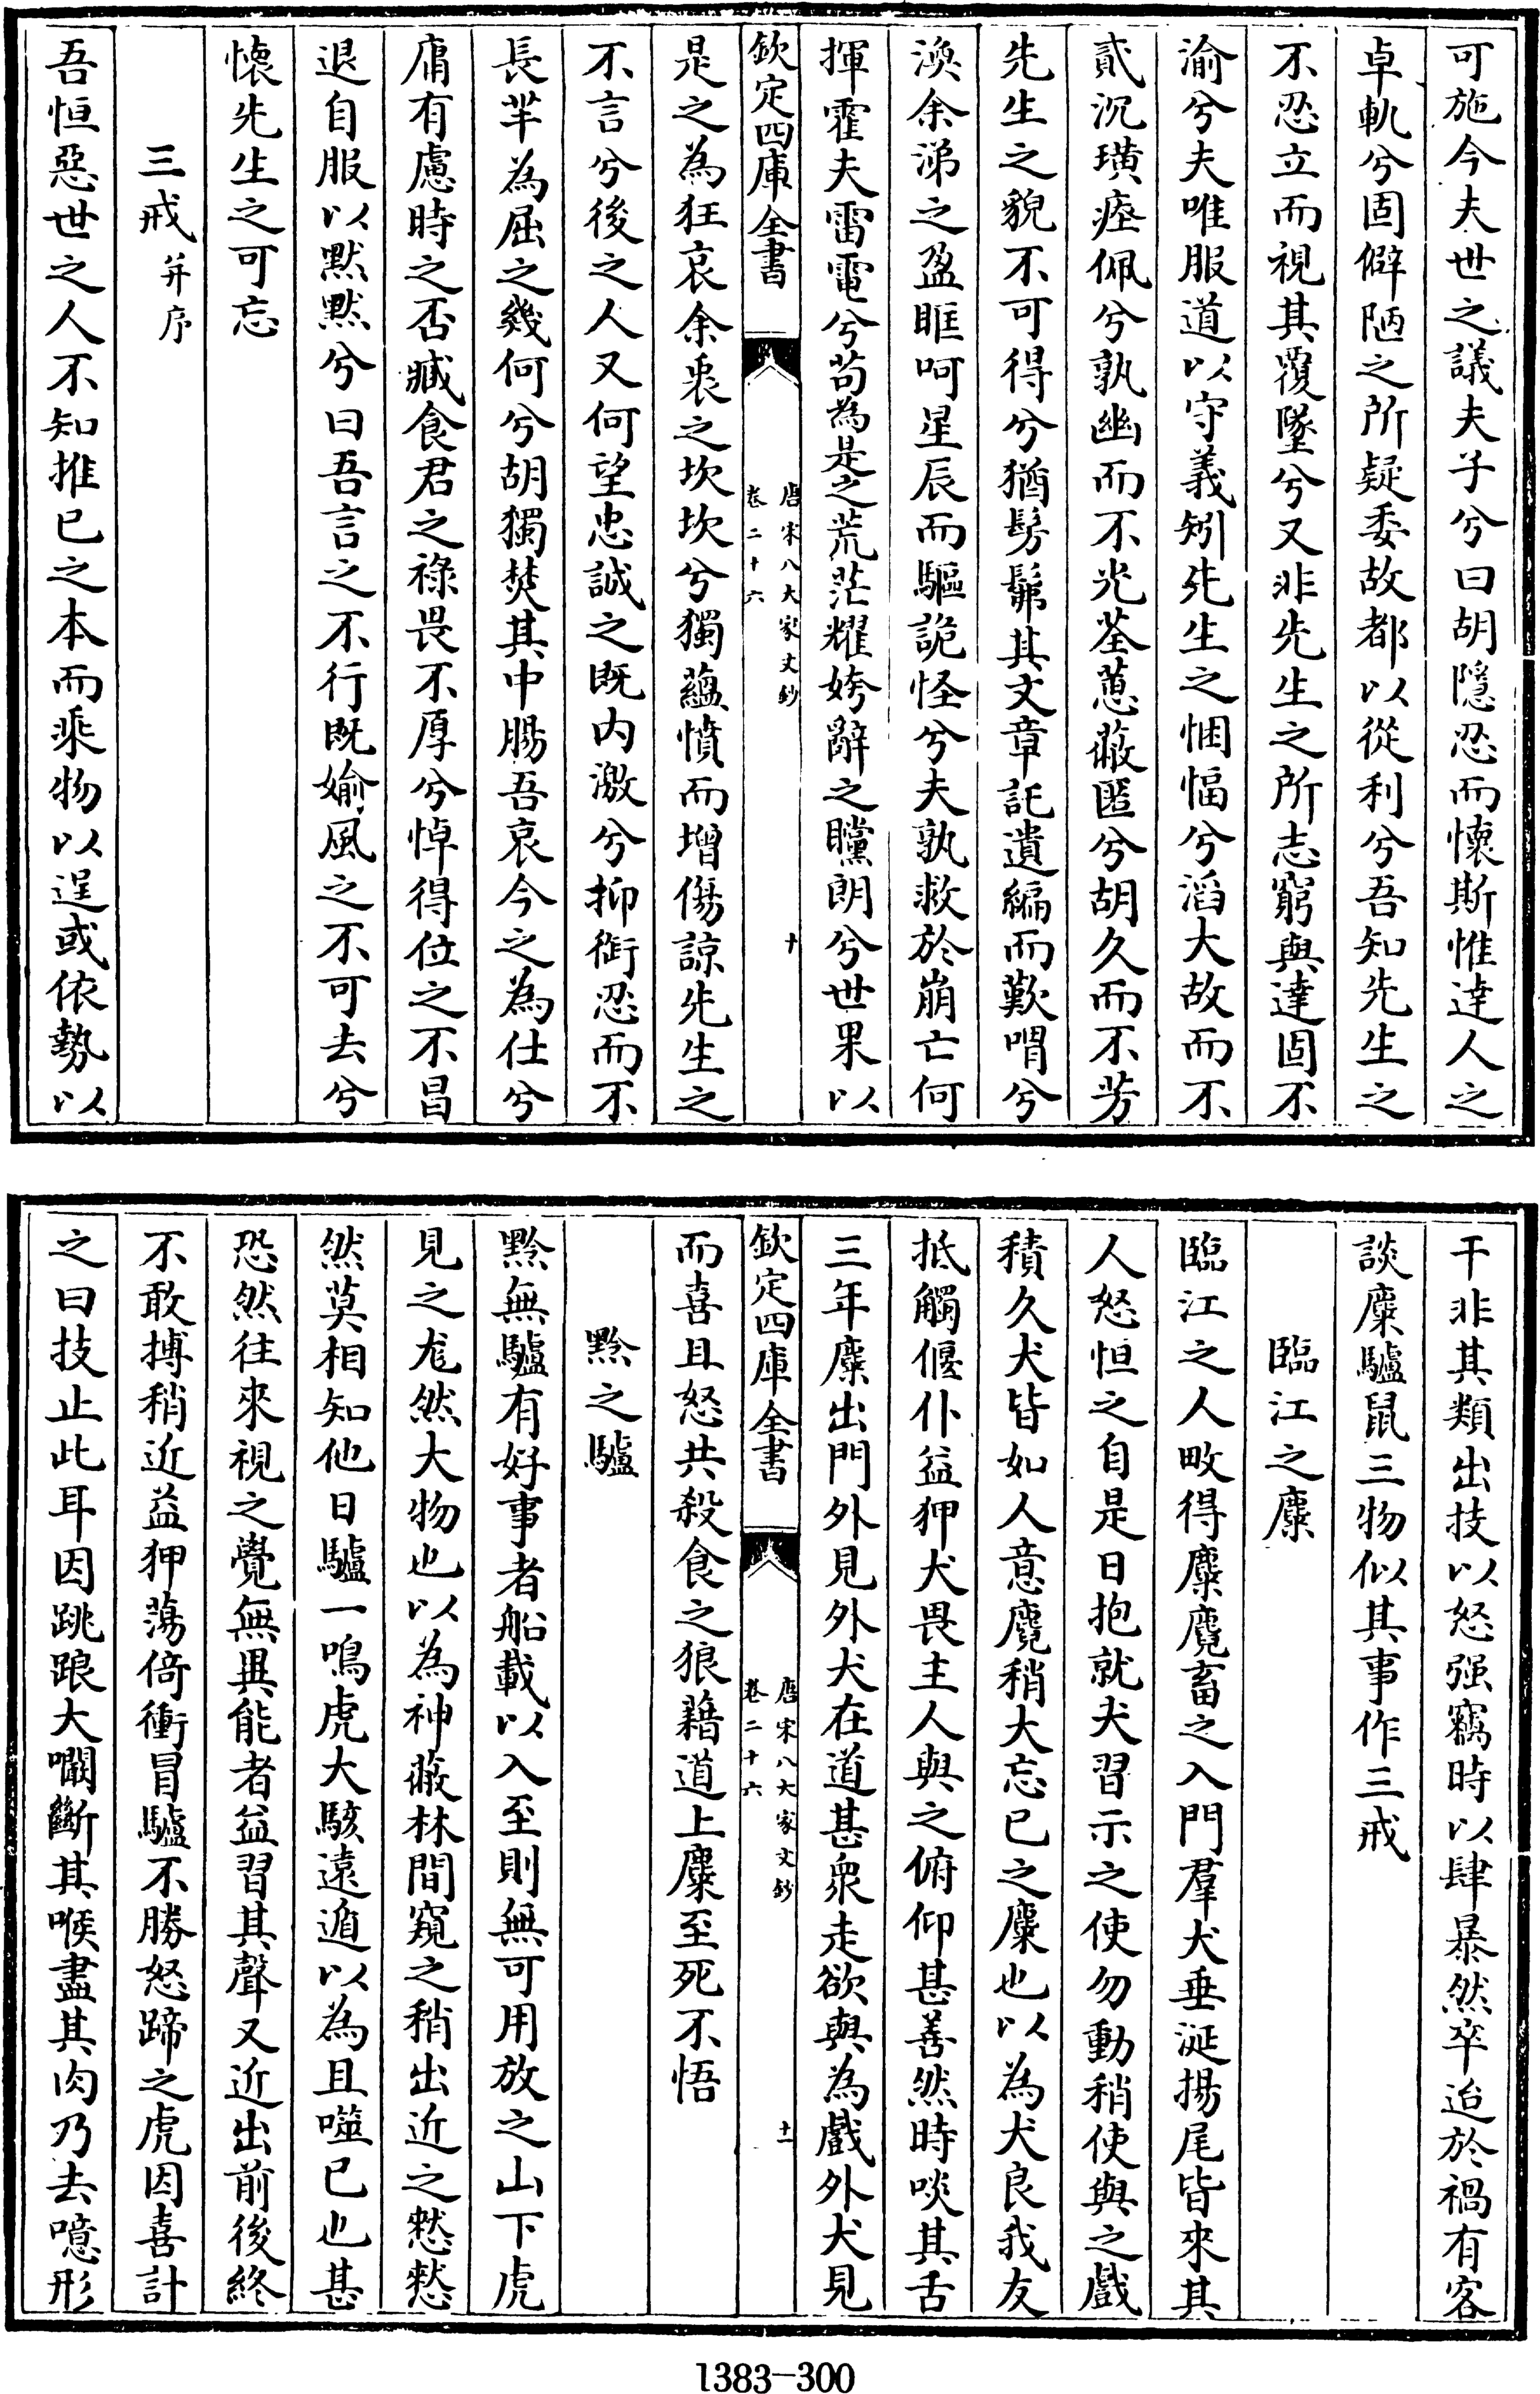 可施今夫世之議夫子兮曰胡隱忍而懷斯惟達人之
卓軌兮固僻陋之所疑委故都以從利兮吾知先生之
不忍立而視其覆墜兮又非先生之所志窮與達固不
渝兮夫唯服道以守義矧先生之悃愊兮滔大故而不
貳沉璜瘞佩兮孰幽而不光荃蕙蔽匿兮胡久而不芳
先生之貌不可得兮猶髣髴其文章託遺編而歎喟兮
渙余涕之盈眶呵星辰而驅詭怪兮夫孰救於崩亡何
揮霍夫雷電兮苟為是之荒茫耀姱辭之矘朗兮世果以
欽定四庫全書
唐宋八大家文鈔
卷二十六
十
是之為狂哀余衷之坎坎兮獨蘊憤而增傷諒先生之
不言兮後之人又何望忠誠之既内激兮抑銜忍而不
長羋為屈之幾何兮胡獨焚其中腸吾哀今之為仕兮
庸有慮時之否臧食君之祿畏不厚兮悼得位之不昌
退自服以黙黙兮曰吾言之不行既媮風之不可去兮
懷先生之可忘
三戒并序
吾恒惡世之人不知推已之本而乘物以逞或依勢以
干非其類出技以怒强竊時以肆暴然卒迨於禍有客
談麋驢鼠三物似其事作三戒
臨江之麋
臨江之人畋得麋麑畜之入門羣犬垂涎揚尾皆來其
人怒怛之自是日抱就犬習示之使勿動稍使與之戲
積久犬皆如人意麑稍大忘已之麋也以為犬良我友
抵觸偃仆益狎犬畏主人與之俯仰甚善然時啖其舌
三年麋出門外見外犬在道甚衆走欲與為戲外犬見
欽定四庫全書
唐宋八大家文鈔
卷二十六
十一
而喜且怒共殺食之狼藉道上麋至死不悟
黔之驢
黔無驢有好事者船載以入至則無可用放之山下虎
見之尨然大物也以為神蔽林間窺之稍出近之憖憖
然莫相知他日驢一鳴虎大駭遠遁以為且噬已也甚
恐然往來視之覺無異能者益習其聲又近出前後終
不敢搏稍近益狎蕩倚衝冒驢不勝怒蹄之虎因喜計
之曰技止此耳因跳踉大㘎斷其喉盡其肉乃去噫形
1383-300